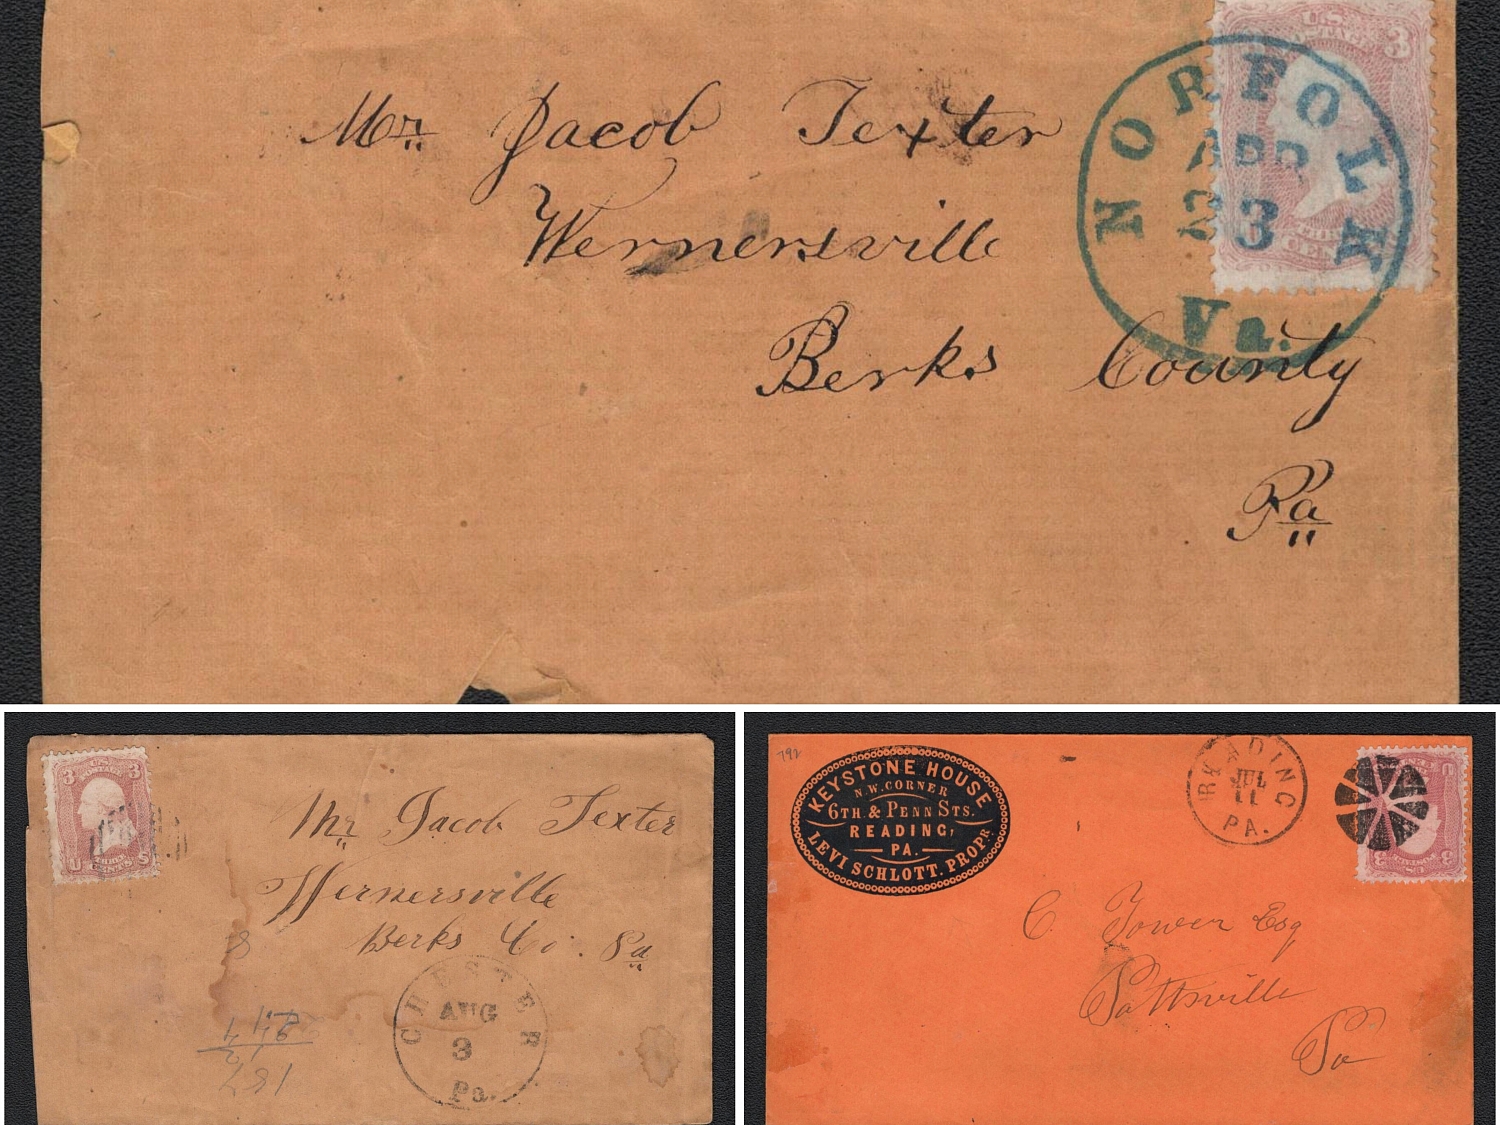 U.S. POSTAGE 3
NORFOLK
APR
23
Va.
Mr. Jacob Texter
Wernersville
Berks County
Pa
3 U.S. POSTAGE 3
U THREE CENTS S
Mr. Jacob Texter
Wernersville
Berks Co. Pa
8
CHESTER
AUG
3
Pa.
792
KEYSTONE HOUSE
N.W. CORNER
6TH. & PENN STS.
READING,
PA.
LEVI SCHLOTT. PROPR.
READING
JUL
11
PA.
C. Tower Esq
Pottsville
Pa